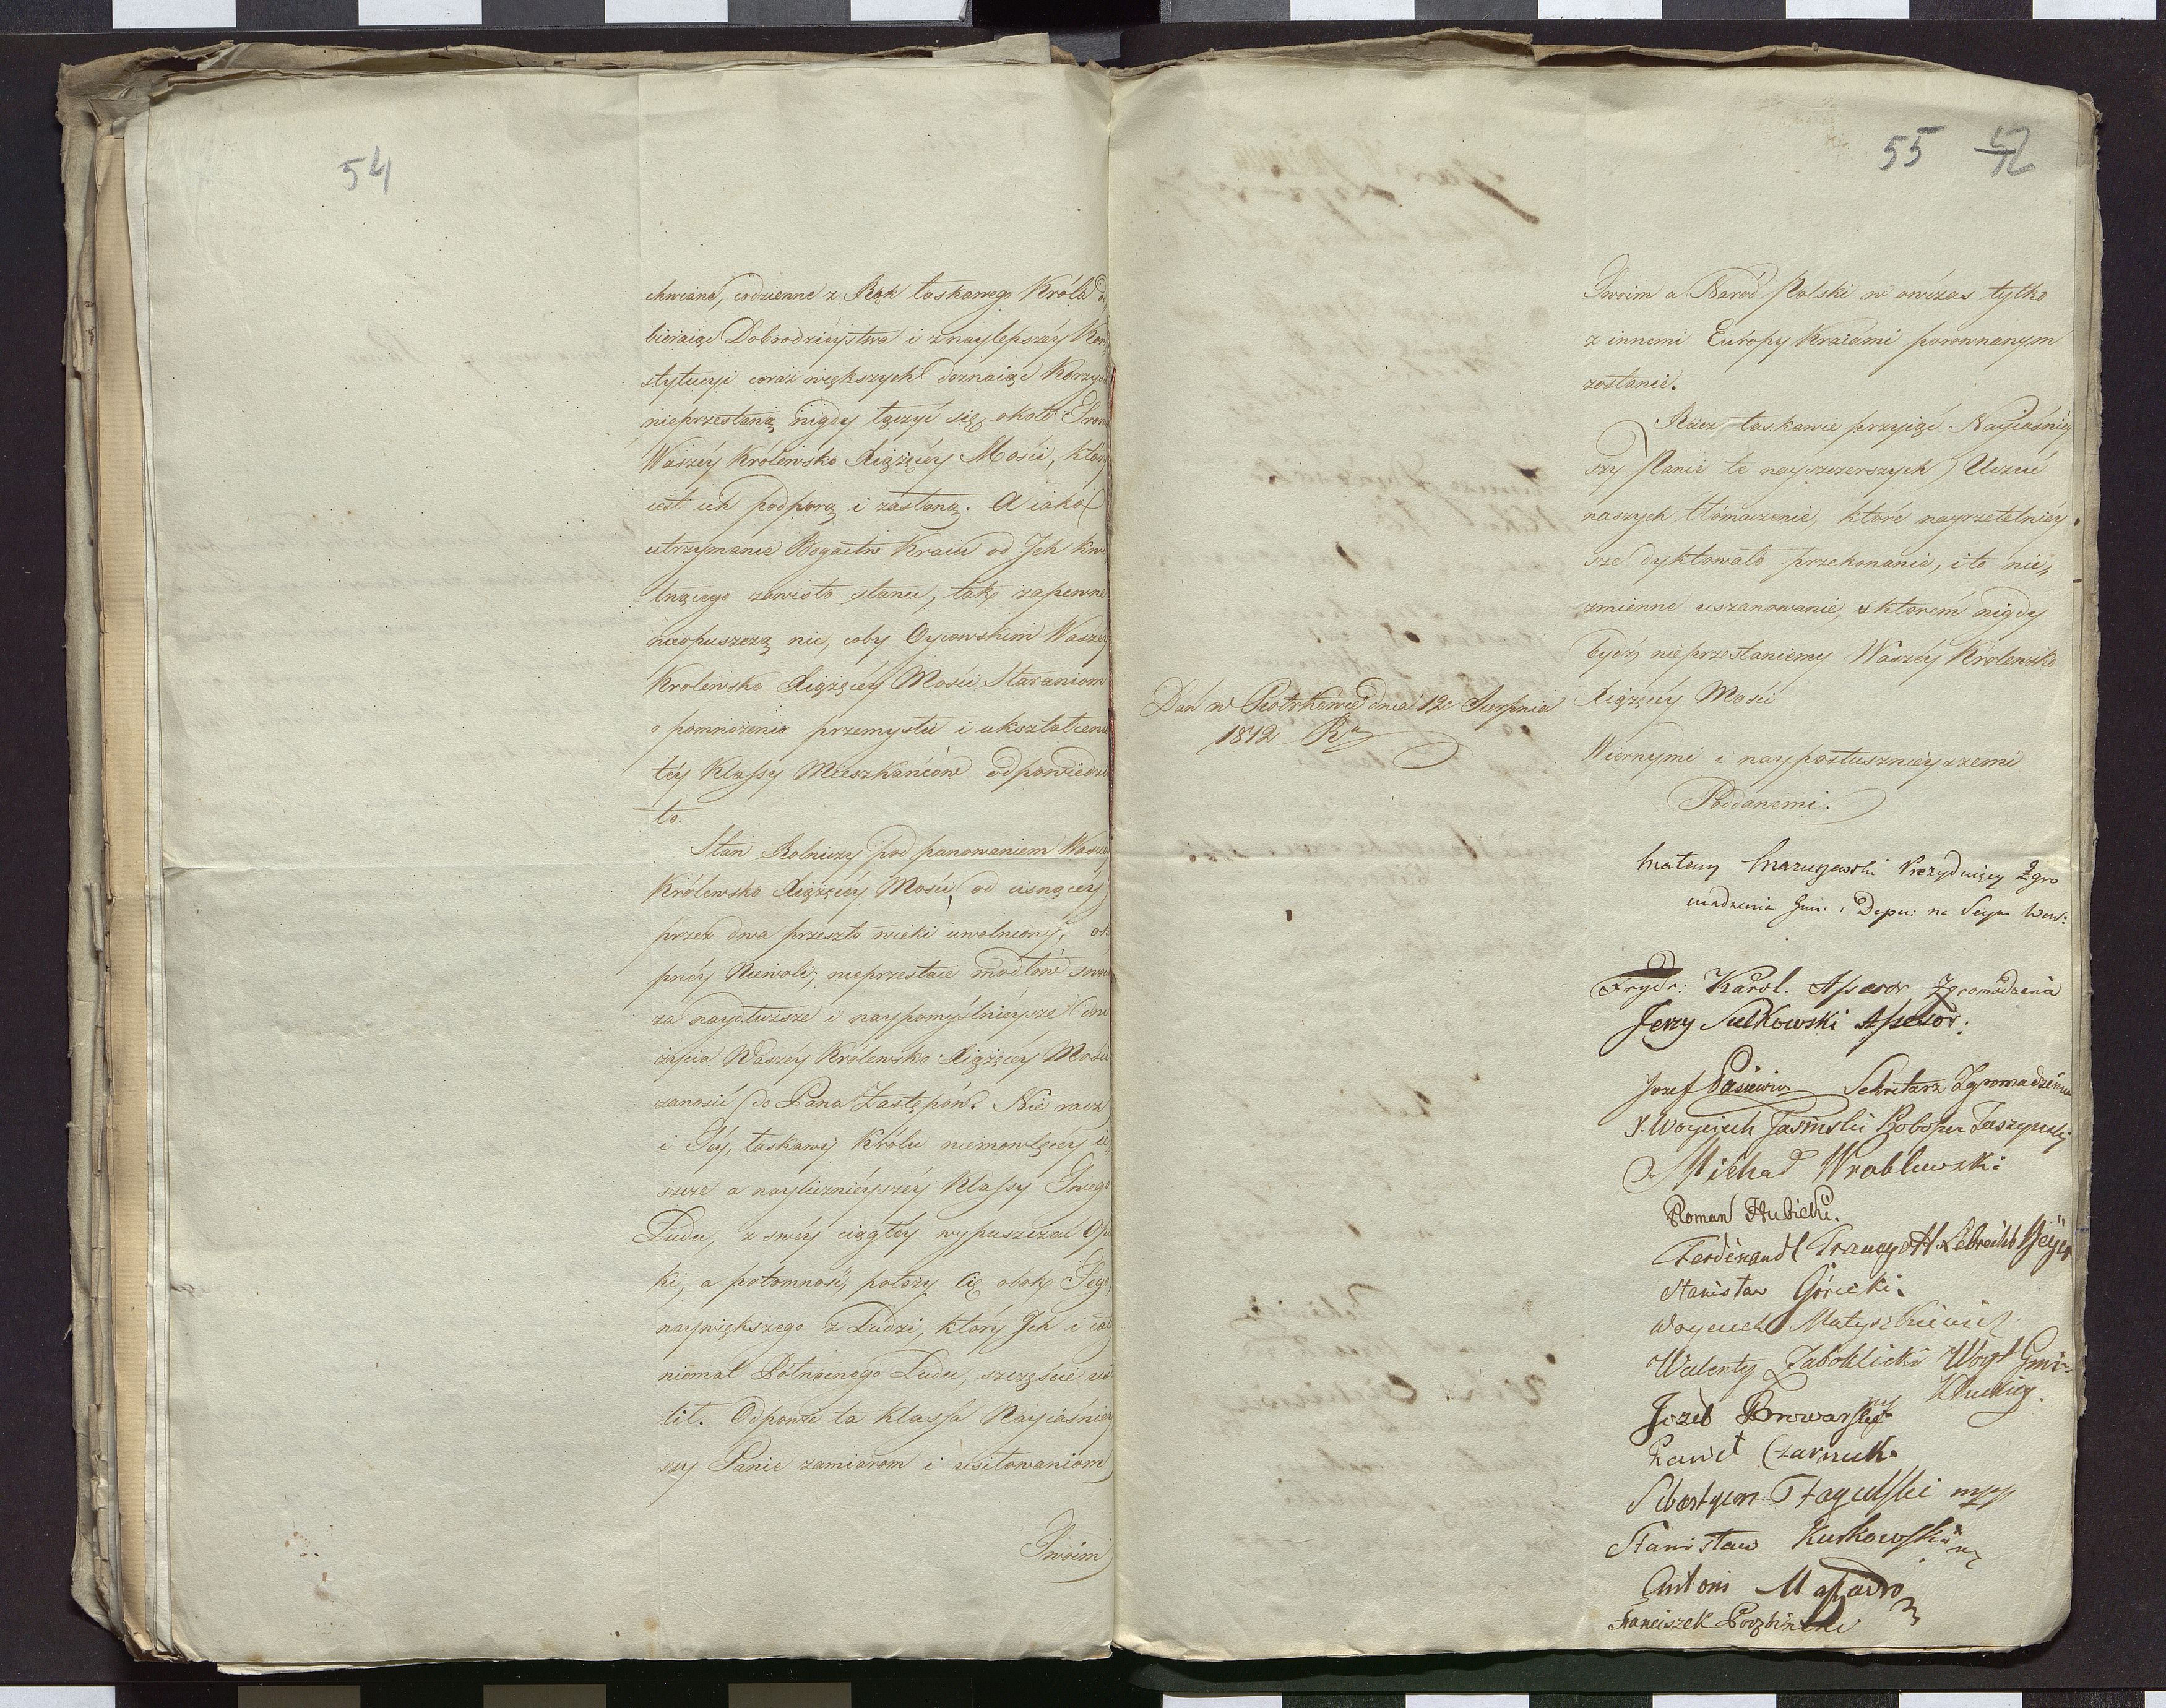 54
chwiane, codzienne z Rąk łaskawego Króla
bieraiąc Dobrodzieystwa i z naylepszéy Kon
stytucyi coraz większych doznaiąc Korzyś
nieprzestaną nigdy łączyć się około Tronu
Waszéy Królewsko Xiążęcéy Mości, któr
iest ich podporą i zasłoną. A iako
utrzymanie Bogactw Kraiu od Jch kwi
tnącego zawisło stanu, tak zapewne
nieopuszczą nic, coby Oycowskim Waszéy
Krolewsko Xiążęcéy Mości Staraniom
o pomnożenie przemysłu i ukształcenie
téy Klassy Mieszkańców odpowiedzia
ło.
Stan Rolniczy pod panowaniem Waszéy
Królewsko Xiążęcéy Mości, od cisnącéy
przez dwa przeszło wieki uwolniony, ok
pnéy Niewoli; nieprzestaie modłów sw
za naydłuższe i naypomyślnieysze dni
życia Waszéy Królewsko Xiążęcéy Mości
zanosić do Pana Zastępów. Nie racz
i Téy, łaskawy Królu niemowlęcéy ie
szcze a naylicznieyszéy Klassy Twego
Ludu, z swéy ciągłéy wypuszczać Opie
ki, a potomność, położy Cię obok Tego
naywiększego z Ludzi, który Jch i cał
niemal Północnego Ludu, szczęście
lił. Odpowie ta Klassa Nayiaśniéy
szy Panie zamiarom i usiłowaniom
Twoim
55 52
Twoim a Naród Polski w owczas tylko
z innemi Europy Kraiami porownanym
zostanie.
Racz łaskawie przyiąć Nayiaśniéy
szy Panie te nayszczerszych Uczuć
naszych tłómaczenie, które nayrzetelniéy
sze dyktowało przekonanie, i to nie
zmienne uszanowanie, z ktorém nigdy
bydź nieprzestaniemy Waszéy Krolewsko
Xiążęcéy Mości
Dan w Piotrkowie dnia 12 Sierpnia
1812 Ru
Wiernymi i nayposłusznieyszemi
Poddanemi.
Mateusz Maruszewski Prezyduiący Zgro
madzenia Gm. i Depu: na Seym Wars:
Fryd: Karol. Assesor Zgromadzenia
Jerzy Sulkowski Assesor:
Jozef Pasiewicz Sekretarz Zgromadzenia
X. Woyciech Jasinski
Michał Wroblewski
Roman Hubicki.
Ferdinandt
Stanisław Górecki.
Woyciech
Walenty Zaboklicki Woyt Gmi-
ny Kluckiey.
Jozéf Browarski
Paweł Czarnecki
Sebastyan
Stanisław Kurkowski
Antoni
Franciszek